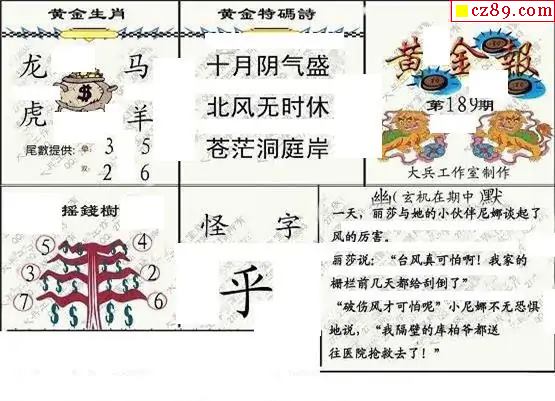 cz89.com
黄金生肖
龙 马
虎 羊
$
尾數提供: 單: 3 5
双: 2 6
黄金特碼詩
十月阴气盛
北风无时休
苍茫洞庭岸
黄金報
第189期
大兵工作室制作
摇錢樹
⑤ ④
③ ②
⑦ ⑥
怪 字
乎
幽(玄机在期中)默
一天，丽莎与她的小伙伴尼娜谈起了
风的厉害。
丽莎说：“台风真可怕啊！我家的
栅栏前几天都给刮倒了”
“破伤风才可怕呢”小尼娜不无恐惧
地说，“我隔壁的库柏爷都送
往医院抢救去了！”